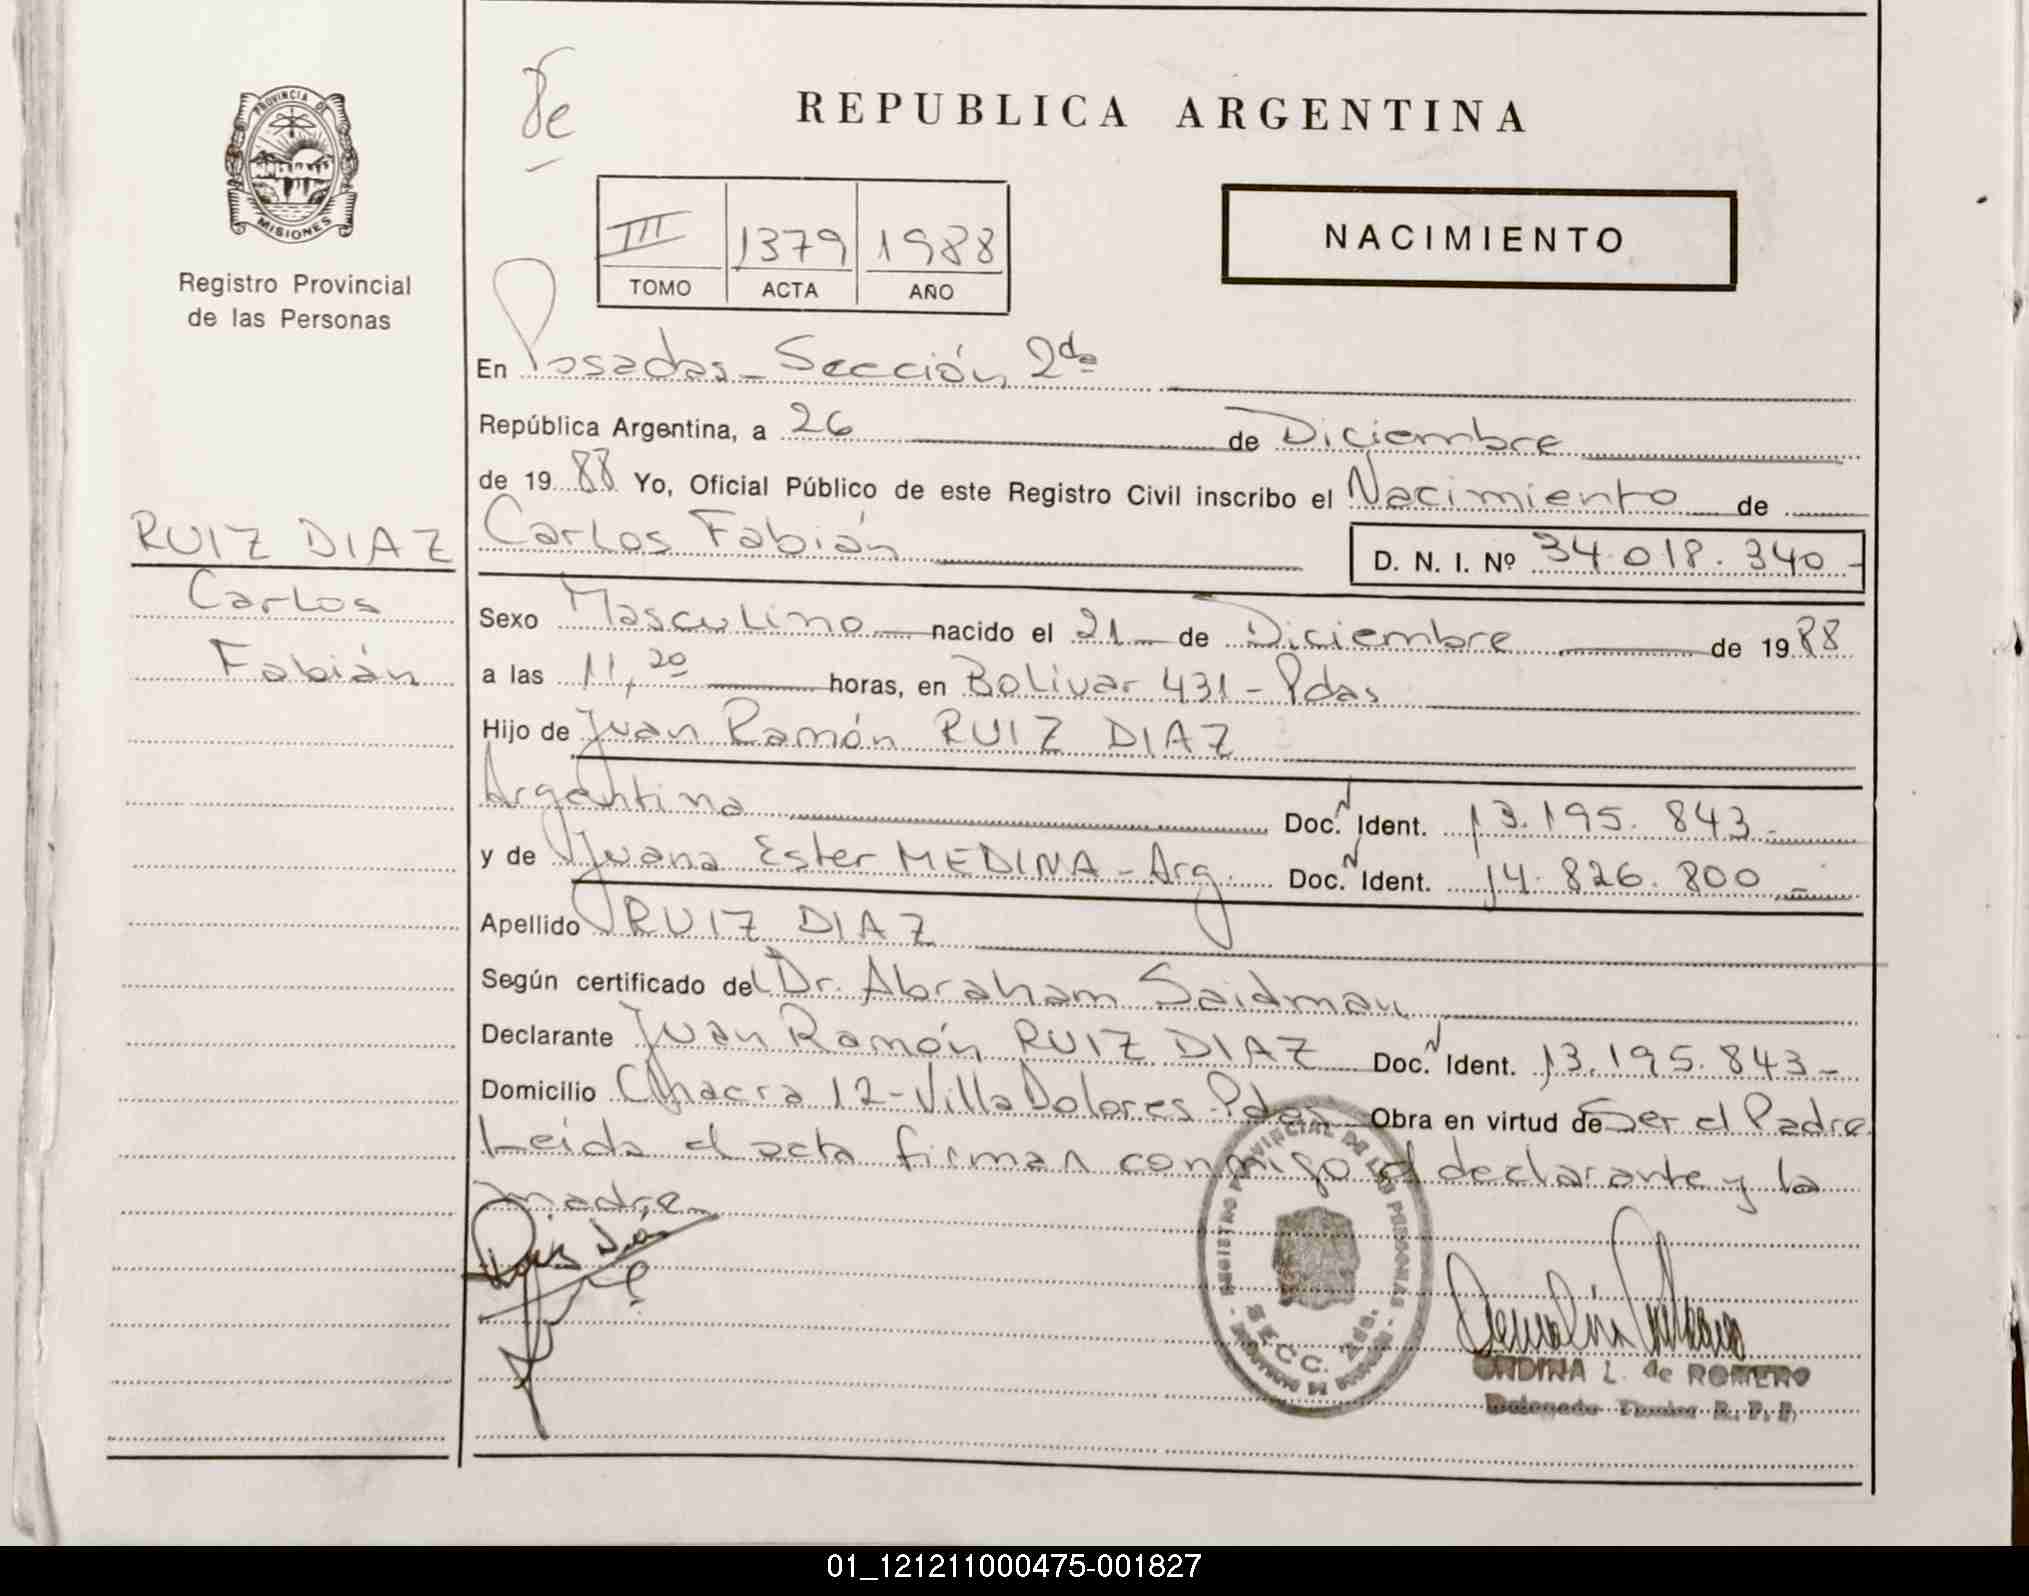 PROVINCIA DE
MISIONES
Registro Provincial
de las Personas
RUIZ DIAZ
Carlos
Fabián
REPUBLICA ARGENTINA
NACIMIENTO
III 1379 1988
TOMO ACTA AÑO
En Posadas - Sección 2da
República Argentina, a 26 de Diciembre
de 1988 Yo, Oficial Público de este Registro Civil inscribo el Nacimiento de
Carlos Fabián D. N. I. Nº 34.018.340-
Sexo Masculino nacido el 21 de Diciembre de 1988
a las 11,20 horas, en Bolivar 431 - Pdas
Hijo de Juan Ramón RUIZ DIAZ
Argentina Doc. Ident. 13.195.843-
y de Juana Ester MEDINA - Arg. Doc. Ident. 14.826.800-
Apellido RUIZ DIAZ
Según certificado del Dr. Abraham Saidman
Declarante Juan Ramón RUIZ DIAZ Doc. Ident. 13.195.843-
Domicilio Chacra 12 - Villa Dolores - Pdas Obra en virtud de Ser el Padre
Leida el acta firman conmigo el declarante y la
madre
Ruiz Diaz
REGISTRO PROVINCIAL DE LAS PERSONAS
SECC. 2da.
ONDINA L. de ROMERO
R. P. P.
01_121211000475-001827